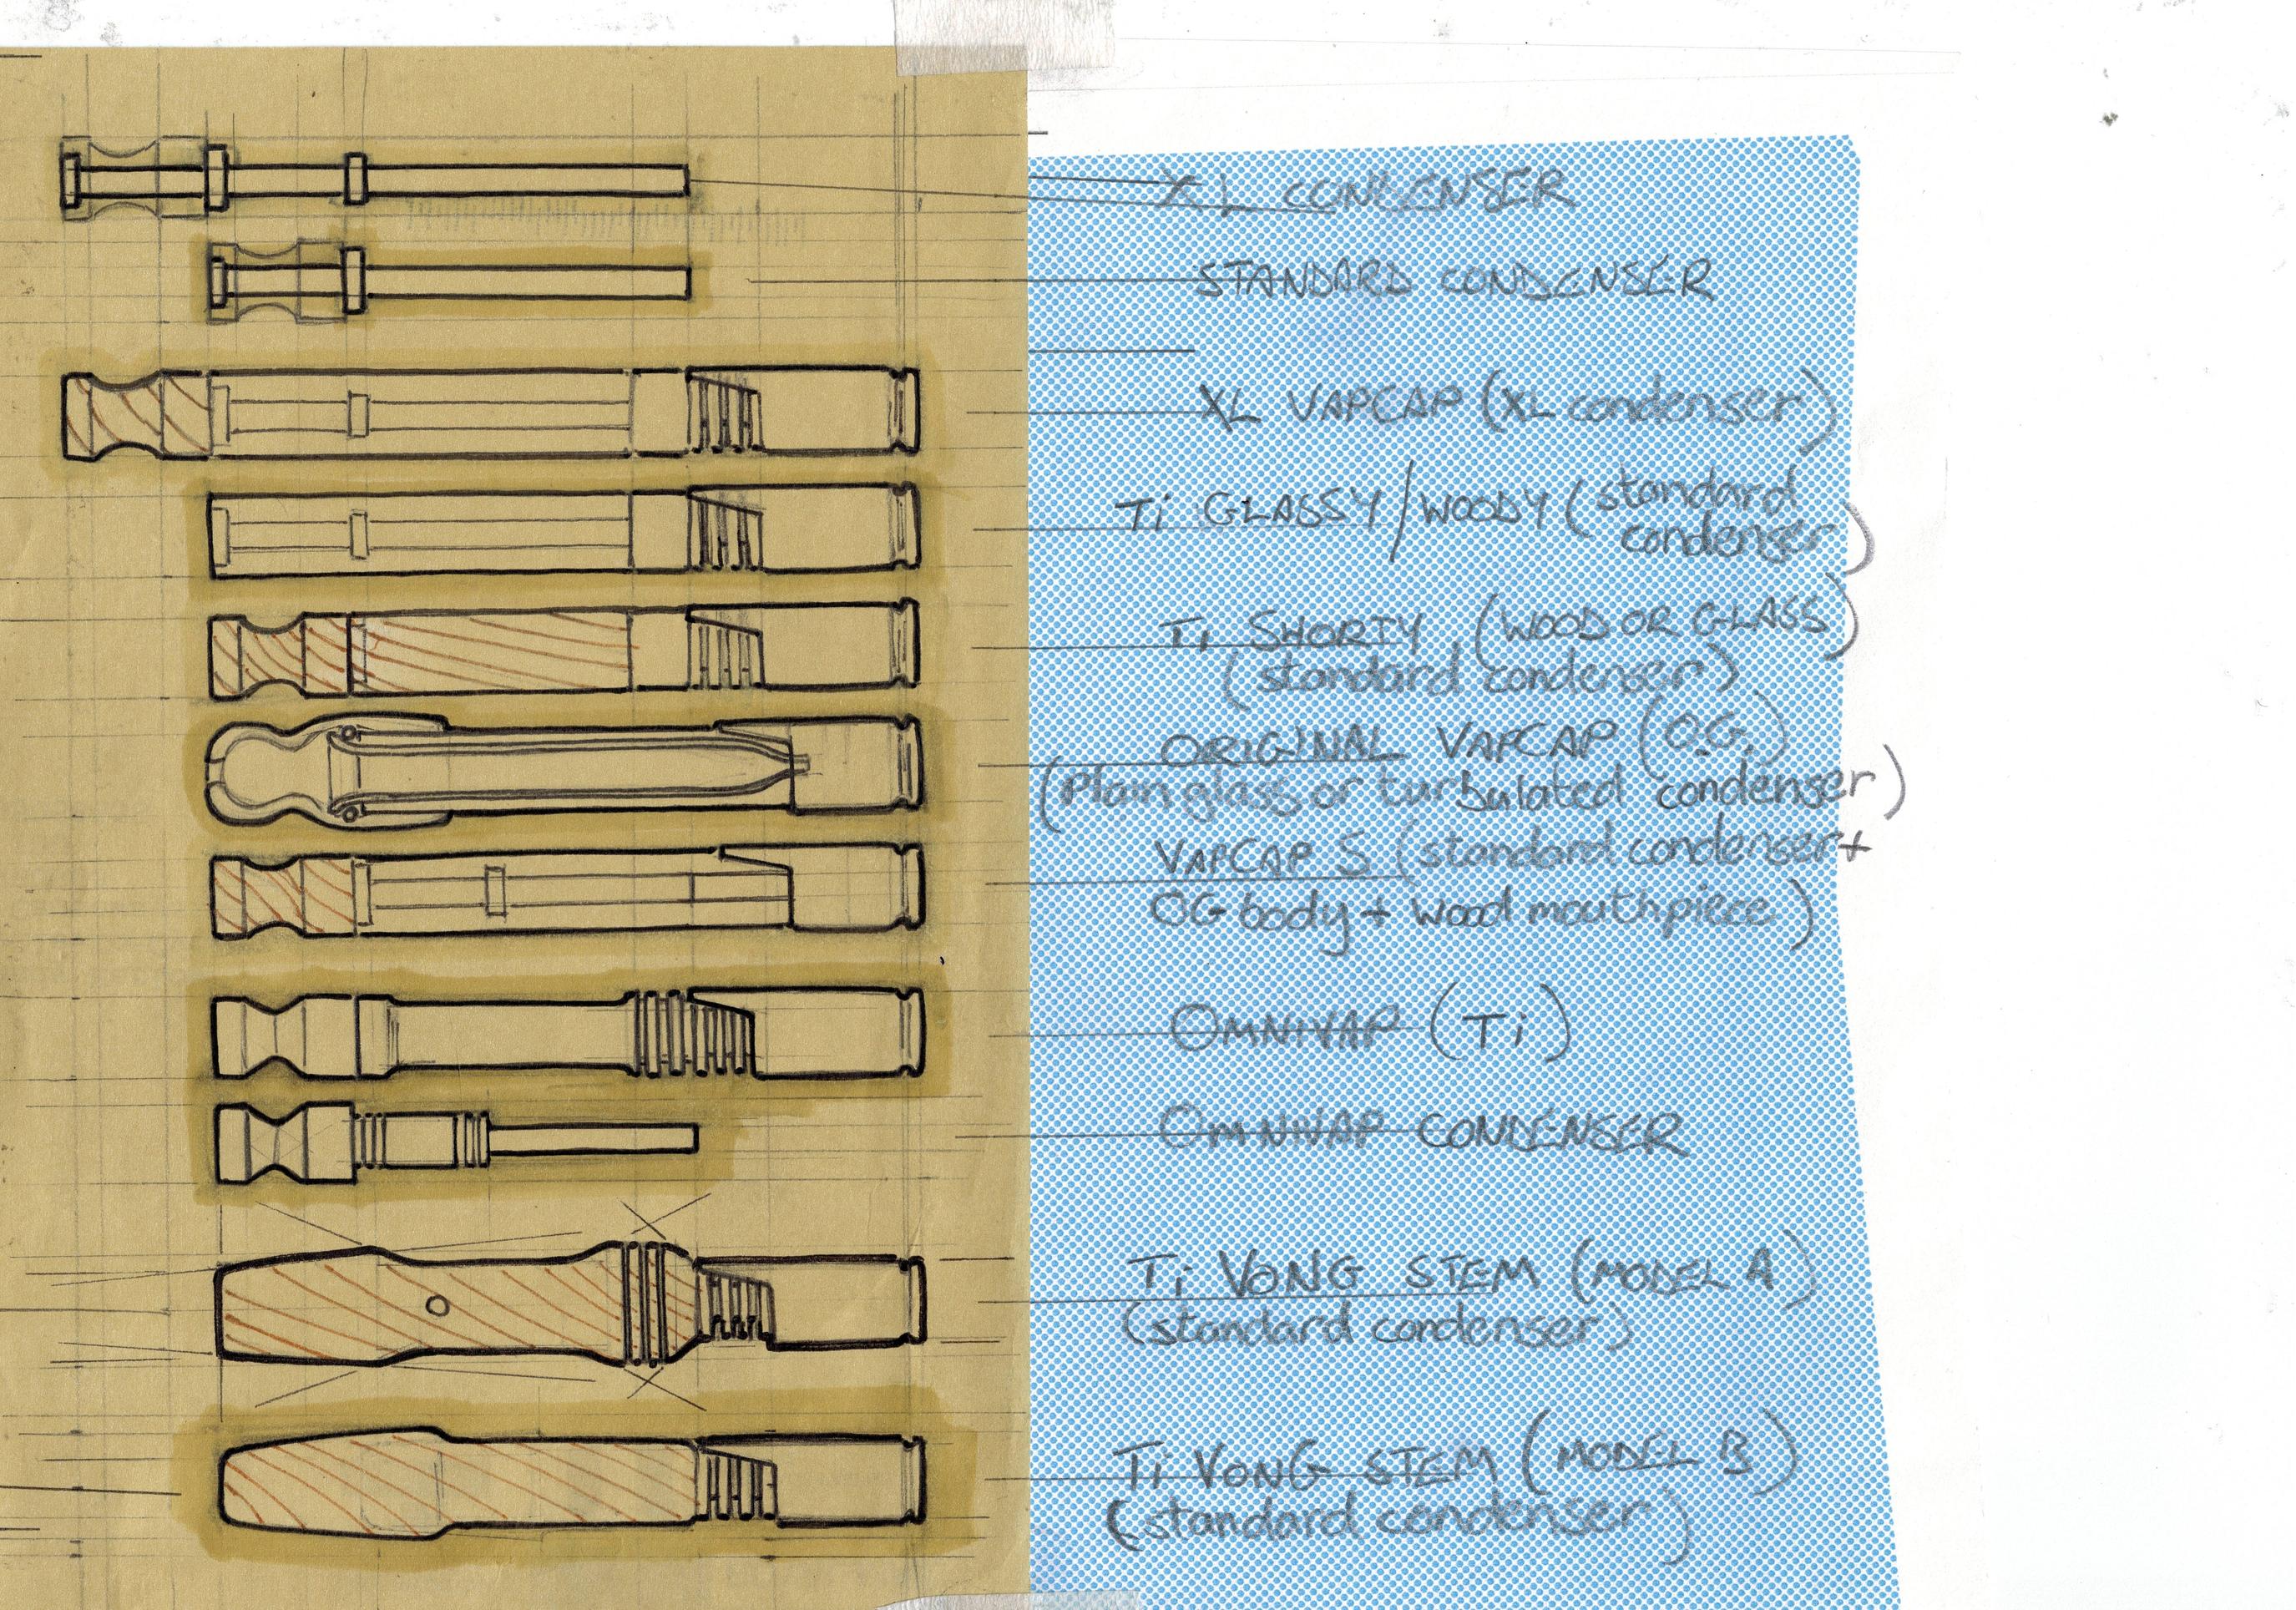 XL CONDENSER
STANDARD CONDENSER
XL VAPCAP (XL condenser)
Ti GLASSY/WOODY (standard
condenser)
Ti SHORTY (WOOD OR GLASS)
(standard condenser)
ORIGINAL VAPCAP (O.G.)
(Plain glass or turbulated condenser)
VAPCAP S (standard condenser +
OG body + wood mouthpiece)
OMNIVAP (Ti)
OMNIVAP CONDENSER
Ti VONG STEM (MODEL A)
(standard condenser)
Ti VONG STEM (MODEL B)
(standard condenser)